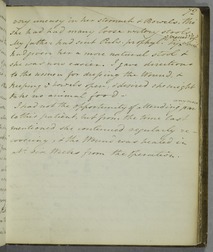 very uneasy in her stomach & Bowels. Tho
she had had many loose watery stools.
My father had sent Pulv.
And given her a more natural stool &
she was now easier. I gave directions
to the women for dressing the Wound, &
keeping her Bowels open. I desired she might
take no animal food.
I had not the opportunity of attending
to this patient, but from the time last
mentioned she continued regularly re-
covering, & the Wound was healed in
Weeks from the Operation.